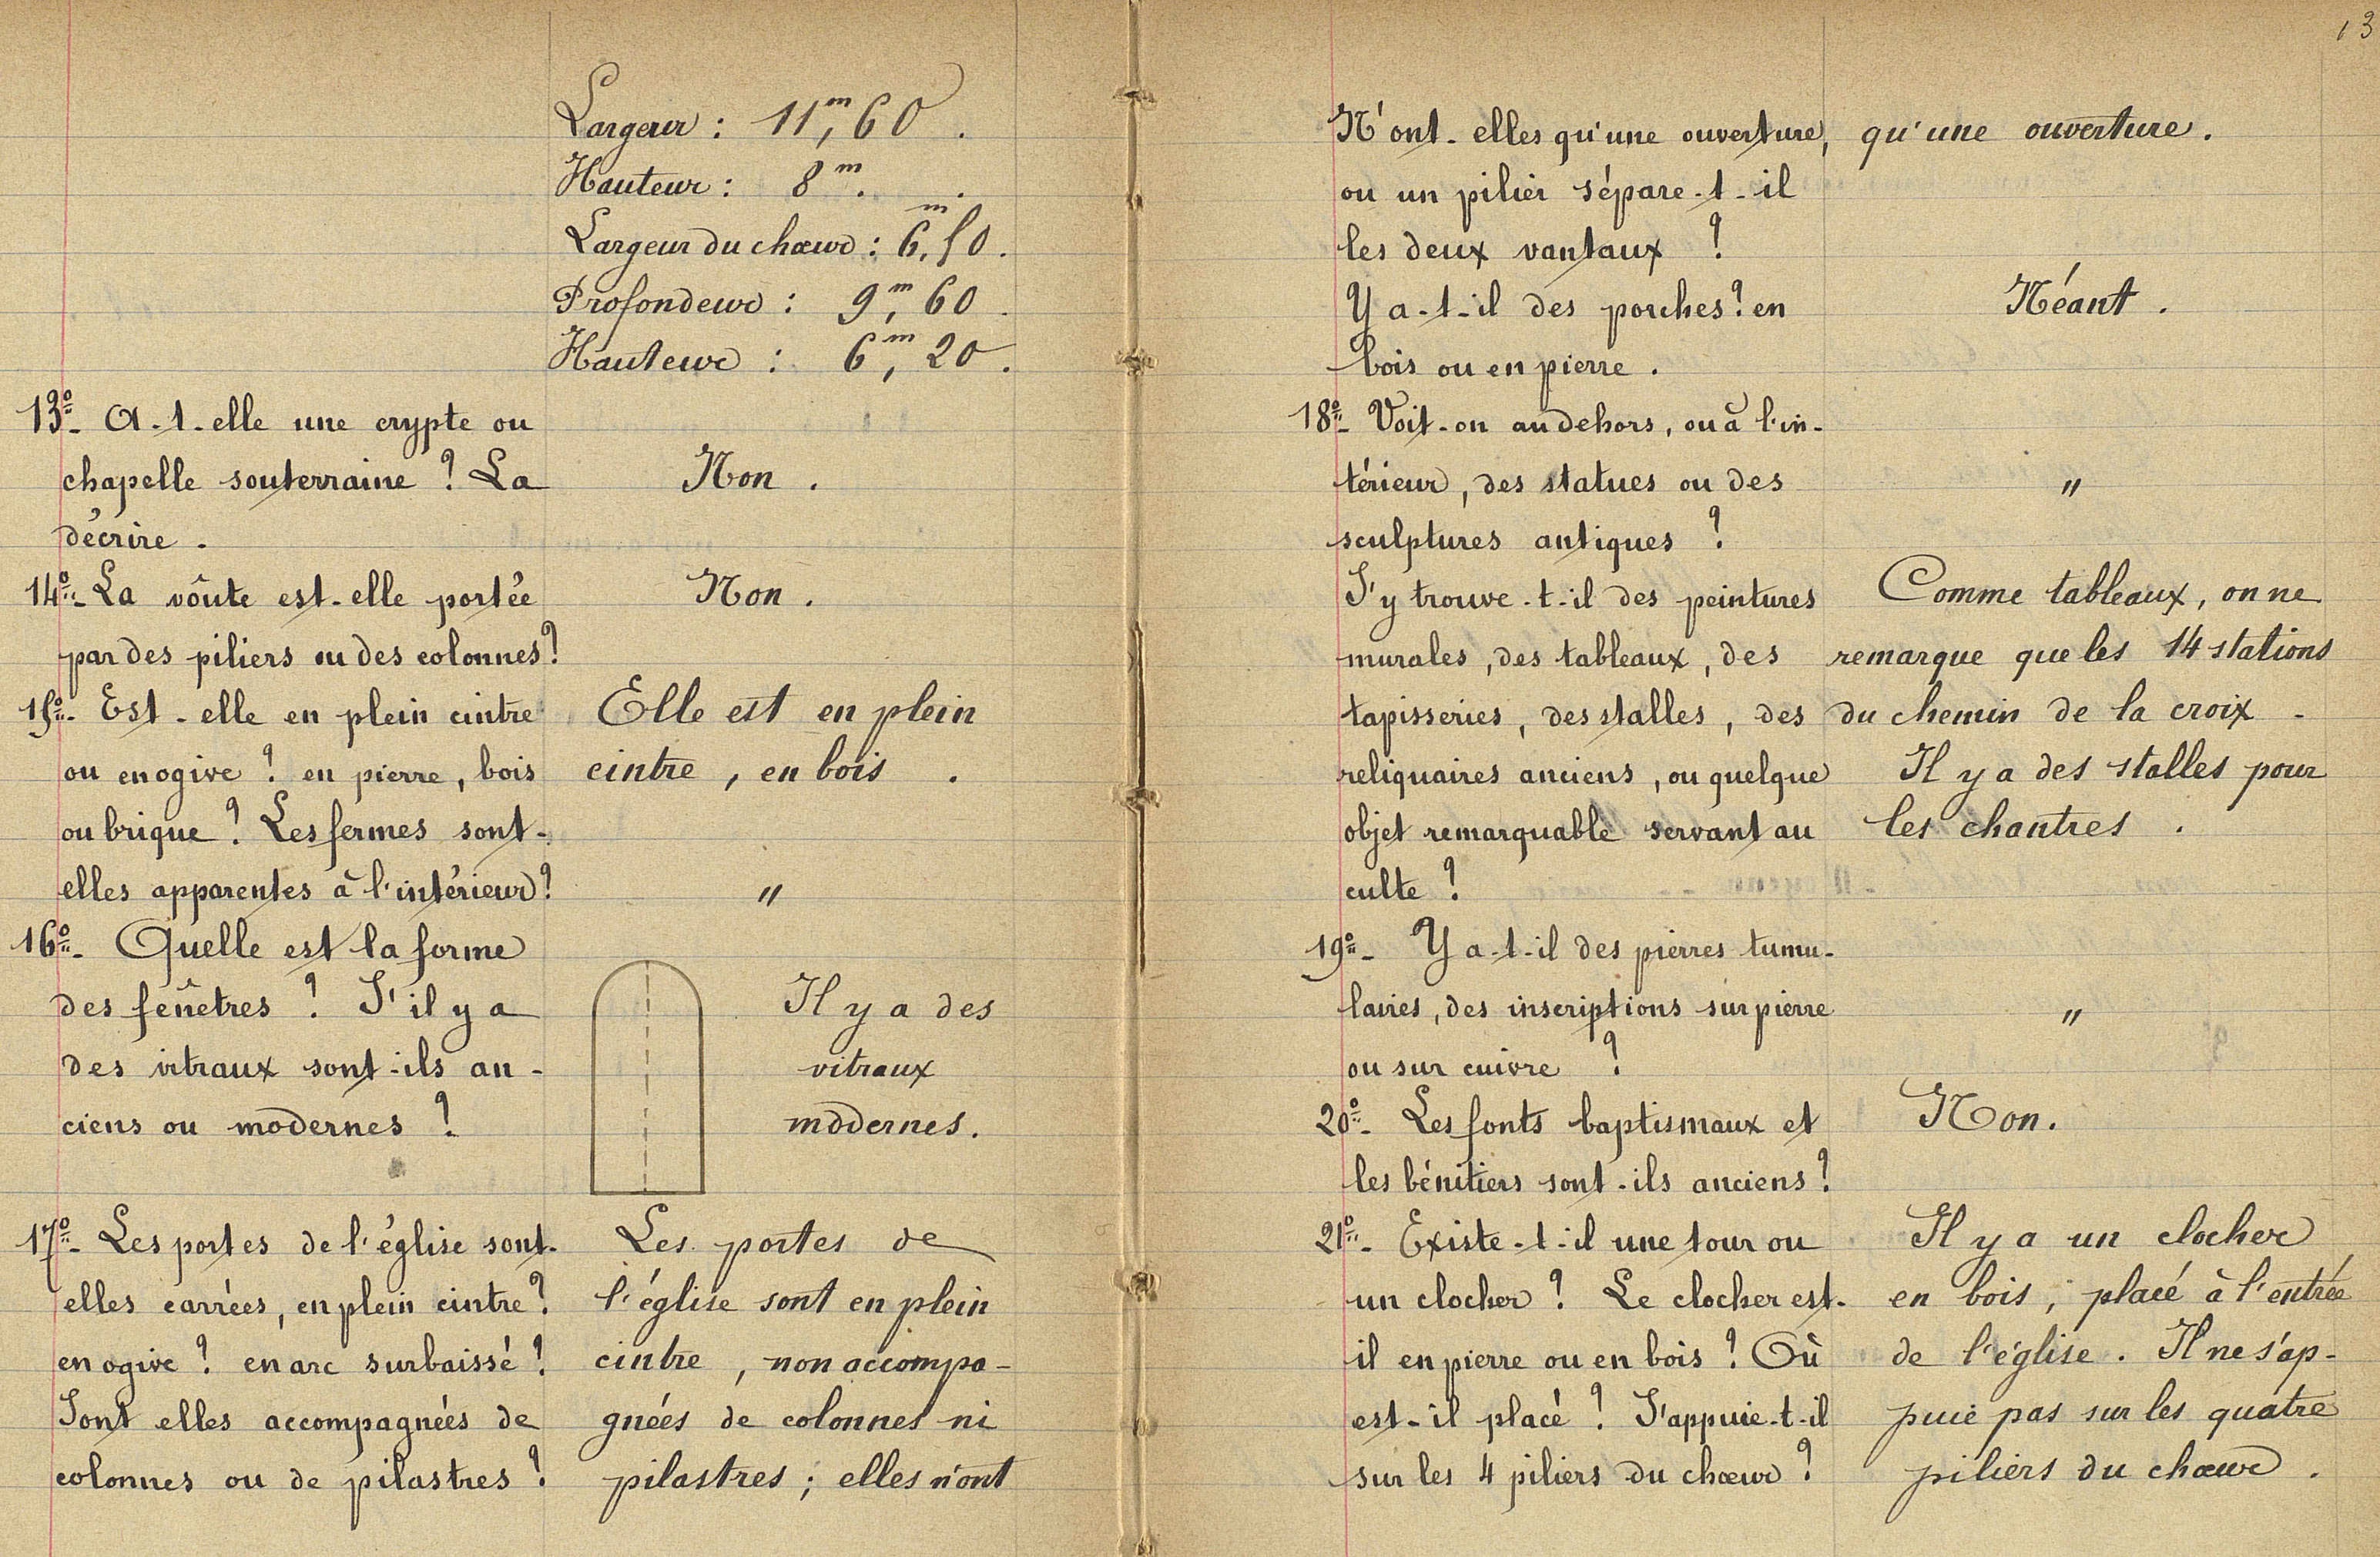 Largeur : 11,m60.
Hauteur : 8m.
Largeur du chœur : 6,m50.
Profondeur : 9,m60.
Hauteur : 6,m20.
13º- A-t-elle une crypte ou
chapelle souterraine ? La
décrire.
Non.
14º- La voûte est-elle portée
par des piliers ou des colonnes ?
Non.
15º- Est-elle en plein cintre
ou en ogive ? en pierre, bois
ou brique ? Les fermes sont-
elles apparentes à l'intérieur ?
Elle est en plein
cintre, en bois.
"
16º- Quelle est la forme
des fenêtres ? S'il y a
des vitraux sont-ils an-
ciens ou modernes ?
Il y a des
vitraux
modernes.
17º- Les portes de l'église sont-
elles carrées, en plein cintre ?
en ogive ? en arc surbaissé ?
Sont elles accompagnées de
colonnes ou de pilastres ?
Les portes de
l'église sont en plein
cintre, non accompa-
gnées de colonnes ni
pilastres ; elles n'ont
13
N'ont-elles qu'une ouverture,
ou un pilier sépare-t-il
les deux vantaux ?
qu'une ouverture.
Y a-t-il des porches ? en
bois ou en pierre.
Néant.
18º- Voit-on au dehors, ou à l'in-
térieur, des statues ou des
sculptures antiques ?
"
S'y trouve-t-il des peintures
murales, des tableaux, des
tapisseries, des stalles, des
reliquaires anciens, ou quelque
objet remarquable servant au
culte ?
Comme tableaux, on ne
remarque que les 14 stations
du chemin de la croix.
Il y a des stalles pour
les chantres.
19º- Y a-t-il des pierres tumu-
laires, des inscriptions sur pierre
ou sur cuivre ?
"
20º- Les fonts baptismaux et
les bénitiers sont-ils anciens ?
Non.
21º- Existe-t-il une tour ou
un clocher ? Le clocher est-
il en pierre ou en bois ? Où
est-il placé ? S'appuie-t-il
sur les 4 piliers du chœur ?
Il y a un clocher
en bois, placé à l'entrée
de l'église. Il ne s'ap-
puie pas sur les quatre
piliers du chœur.